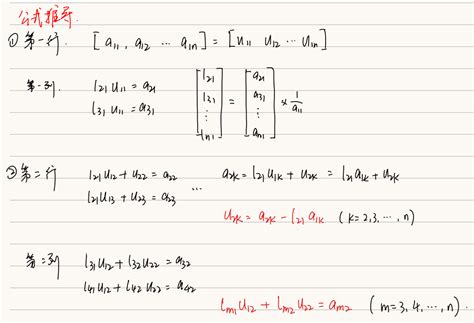 公式推导.
① 第一行. [a₁₁, a₁₂ … a₁ₙ] = [u₁₁ u₁₂ … u₁ₙ]
第一列. l₂₁u₁₁ = a₂₁
l₃₁u₁₁ = a₃₁
[l₂₁ l₃₁ ⋮ lₙ₁] = [a₂₁ a₃₁ ⋮ aₙ₁] × 1/a₁₁
② 第二行 l₂₁u₁₂ + u₂₂ = a₂₂ a₂ₖ = l₂₁u₁ₖ + u₂ₖ = l₂₁a₁ₖ + u₂ₖ
l₂₁u₁₃ + u₂₃ = a₂₃ …
u₂ₖ = a₂ₖ − l₂₁a₁ₖ (k=2,3,…,n)
第二列 l₃₁u₁₂ + l₃₂u₂₂ = a₃₂
l₄₁u₁₂ + l₄₂u₂₂ = a₄₂
lₘ₁u₁₂ + lₘ₂u₂₂ = aₘ₂ (m=3,4,…,n)